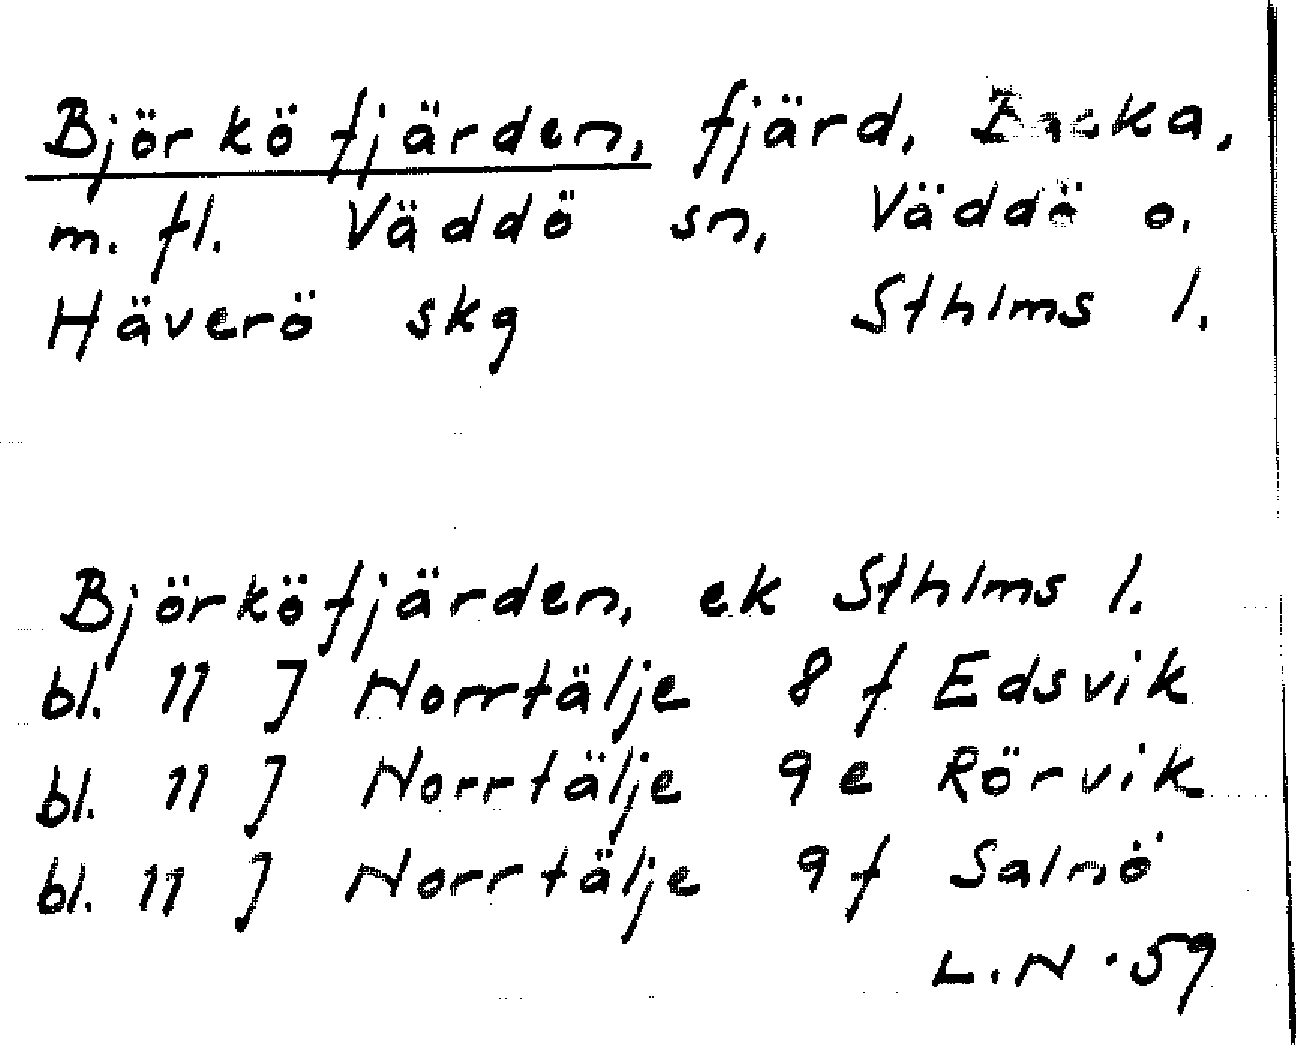 Björköfjärden, fjärd, Backa,
m. fl. Väddö sn, Väddö o.
Häverö skg Sthlms l.
Björköfjärden, ek Sthlms l.
bl. 11 J Norrtälje 8 f Edsvik
bl. 11 J Norrtälje 9 e Rörvik
bl. 11 J Norrtälje 9 f Salnö
L.N. 59